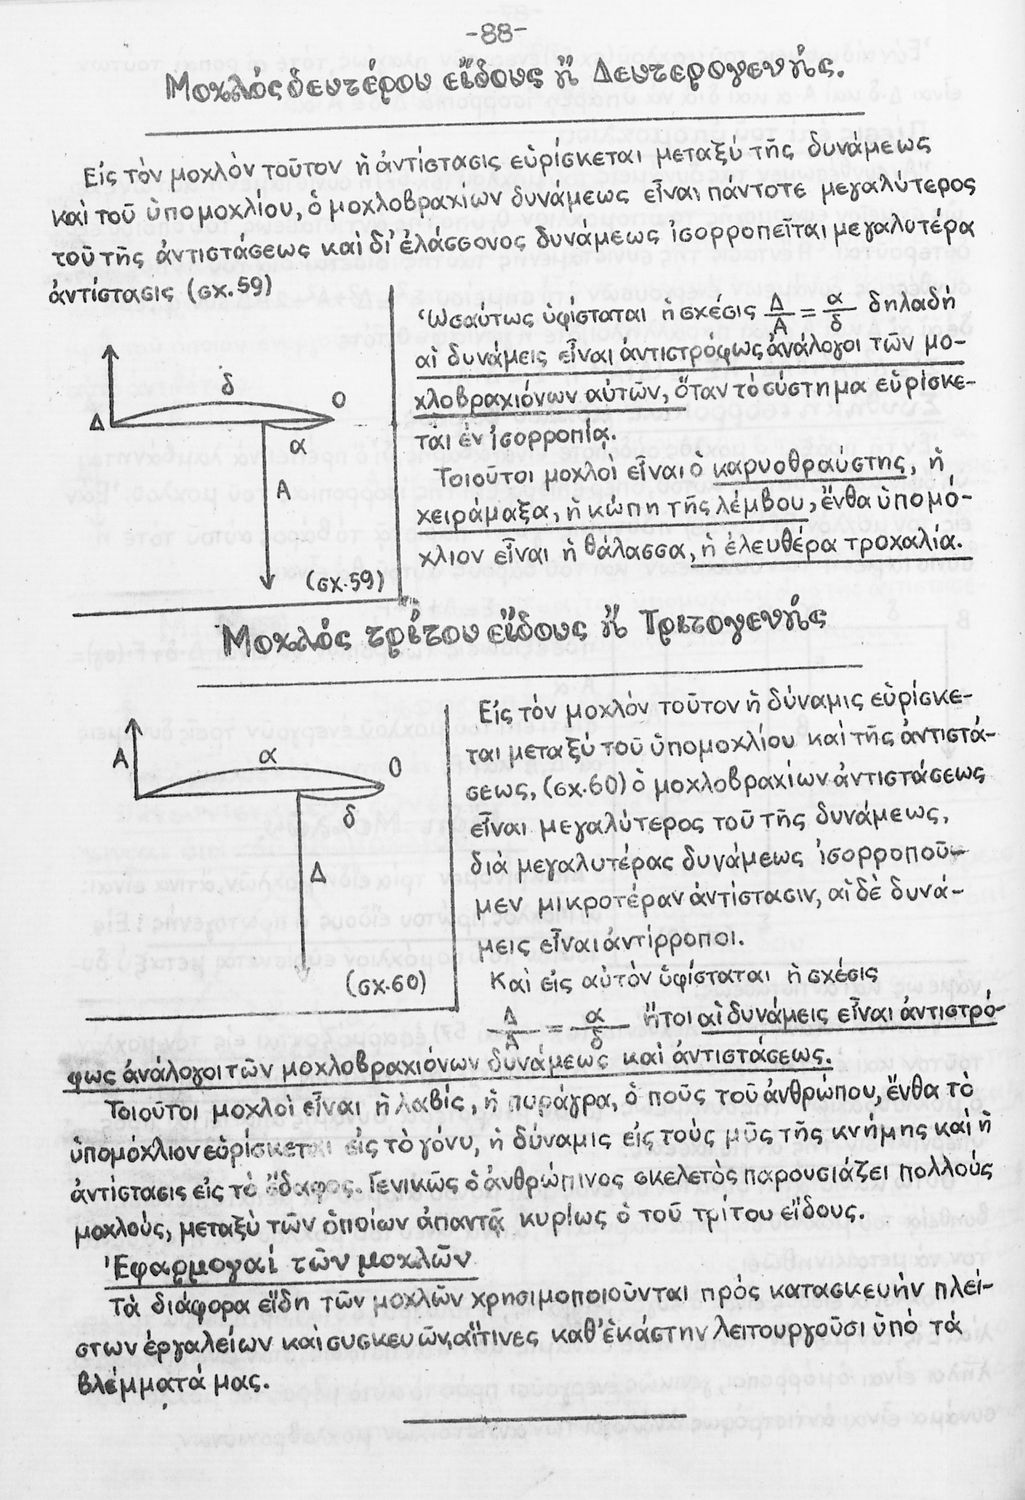 -88-
Μοχλός δευτέρου εἴδους ἤ Δευτερογενής.
Εἰς τόν μοχλόν τοῦτον ἡ ἀντίστασις εὑρίσκεται μεταξύ τῆς δυνάμεως
καί τοῦ ὑπομοχλίου, ὁ μοχλοβραχίων δυνάμεως εἶναι πάντοτε μεγαλύτερος
τοῦ τῆς ἀντιστάσεως καί δι' ἐλάσσονος δυνάμεως ἰσορροπεῖται μεγαλυτέρα
ἀντίστασις (σχ.59)
Ὡσαύτως ὑφίσταται ἡ σχέσις Δ/Α = α/δ δηλαδή
αἱ δυνάμεις εἶναι ἀντιστρόφως ἀνάλογοι τῶν μο-
χλοβραχιόνων αὐτῶν, ὅταν τό σύστημα εὑρίσκε-
ται ἐν ἰσορροπίᾳ.
Τοιοῦτοι μοχλοί εἶναι ὁ καρυοθραυστης, ἡ
χειράμαξα, ἡ κώπη τῆς λέμβου, ἔνθα ὑπομό-
χλιον εἶναι ἡ θάλασσα, ἡ ἐλευθέρα τροχαλία.
Δ
δ
Ο
α
Α
(σχ.59)
Μοχλός τρίτου εἴδους ἤ Τριτογενής
Α
α
Ο
δ
Δ
(σχ.60)
Εἰς τόν μοχλόν τοῦτον ἡ δύναμις εὑρίσκε-
ται μεταξύ τοῦ ὑπομοχλίου καί τῆς ἀντιστά-
σεως, (σχ.60) ὁ μοχλοβραχίων ἀντιστάσεως
εἶναι μεγαλύτερος τοῦ τῆς δυνάμεως,
διά μεγαλυτέρας δυνάμεως ἰσορροποῦ-
μεν μικροτέραν ἀντίστασιν, αἱ δέ δυνά-
μεις εἶναι ἀντίρροποι.
Καί εἰς αὐτόν ὑφίσταται ἡ σχέσις
Δ/Α = α/δ ἤτοι αἱ δυνάμεις εἶναι ἀντιστρό-
φως ἀνάλογοι τῶν μοχλοβραχιόνων δυνάμεως καί ἀντιστάσεως.
Τοιοῦτοι μοχλοί εἶναι ἡ λαβίς, ἡ πυράγρα, ὁ πούς τοῦ ἀνθρώπου, ἔνθα τό
ὑπομόχλιον εὑρίσκεται εἰς τό γόνυ, ἡ δύναμις εἰς τούς μῦς τῆς κνήμης καί ἡ
ἀντίστασις εἰς τό ἔδαφος. Γενικῶς ὁ ἀνθρώπινος σκελετός παρουσιάζει πολλούς
μοχλούς, μεταξύ τῶν ὁποίων ἀπαντᾷ κυρίως ὁ τοῦ τρίτου εἴδους.
Ἐφαρμογαί τῶν μοχλῶν
Τά διάφορα εἴδη τῶν μοχλῶν χρησιμοποιοῦνται πρός κατασκευήν πλεί-
στων ἐργαλείων καί συσκευῶν, αἵτινες καθ' ἑκάστην λειτουργοῦσι ὑπό τά
βλέμματά μας.